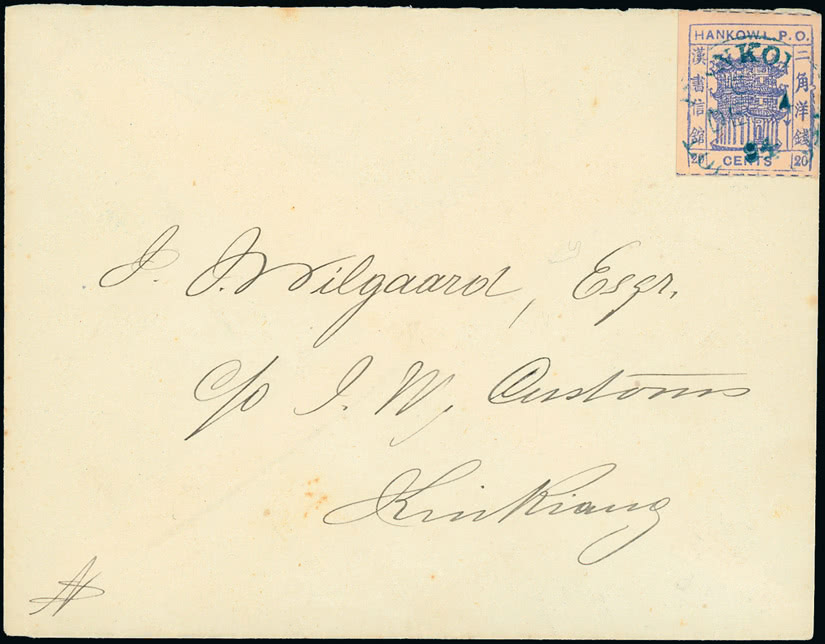 HANKOW L.P.O.
漢書信館
二角洋錢
20 CENTS 20
NKO
94
J. J. Wilgaard, Esqr.
c/o I. M. Customs
Kinkiang